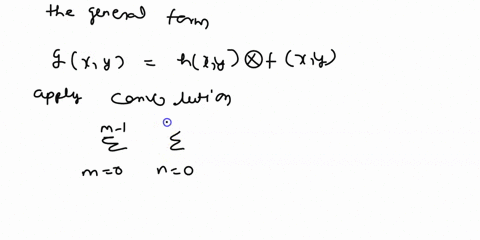 the general form
g(x,y) = h(x,y) ⊗ f(x,y)
apply convolution
m-1
Σ Σ
m=0 n=0